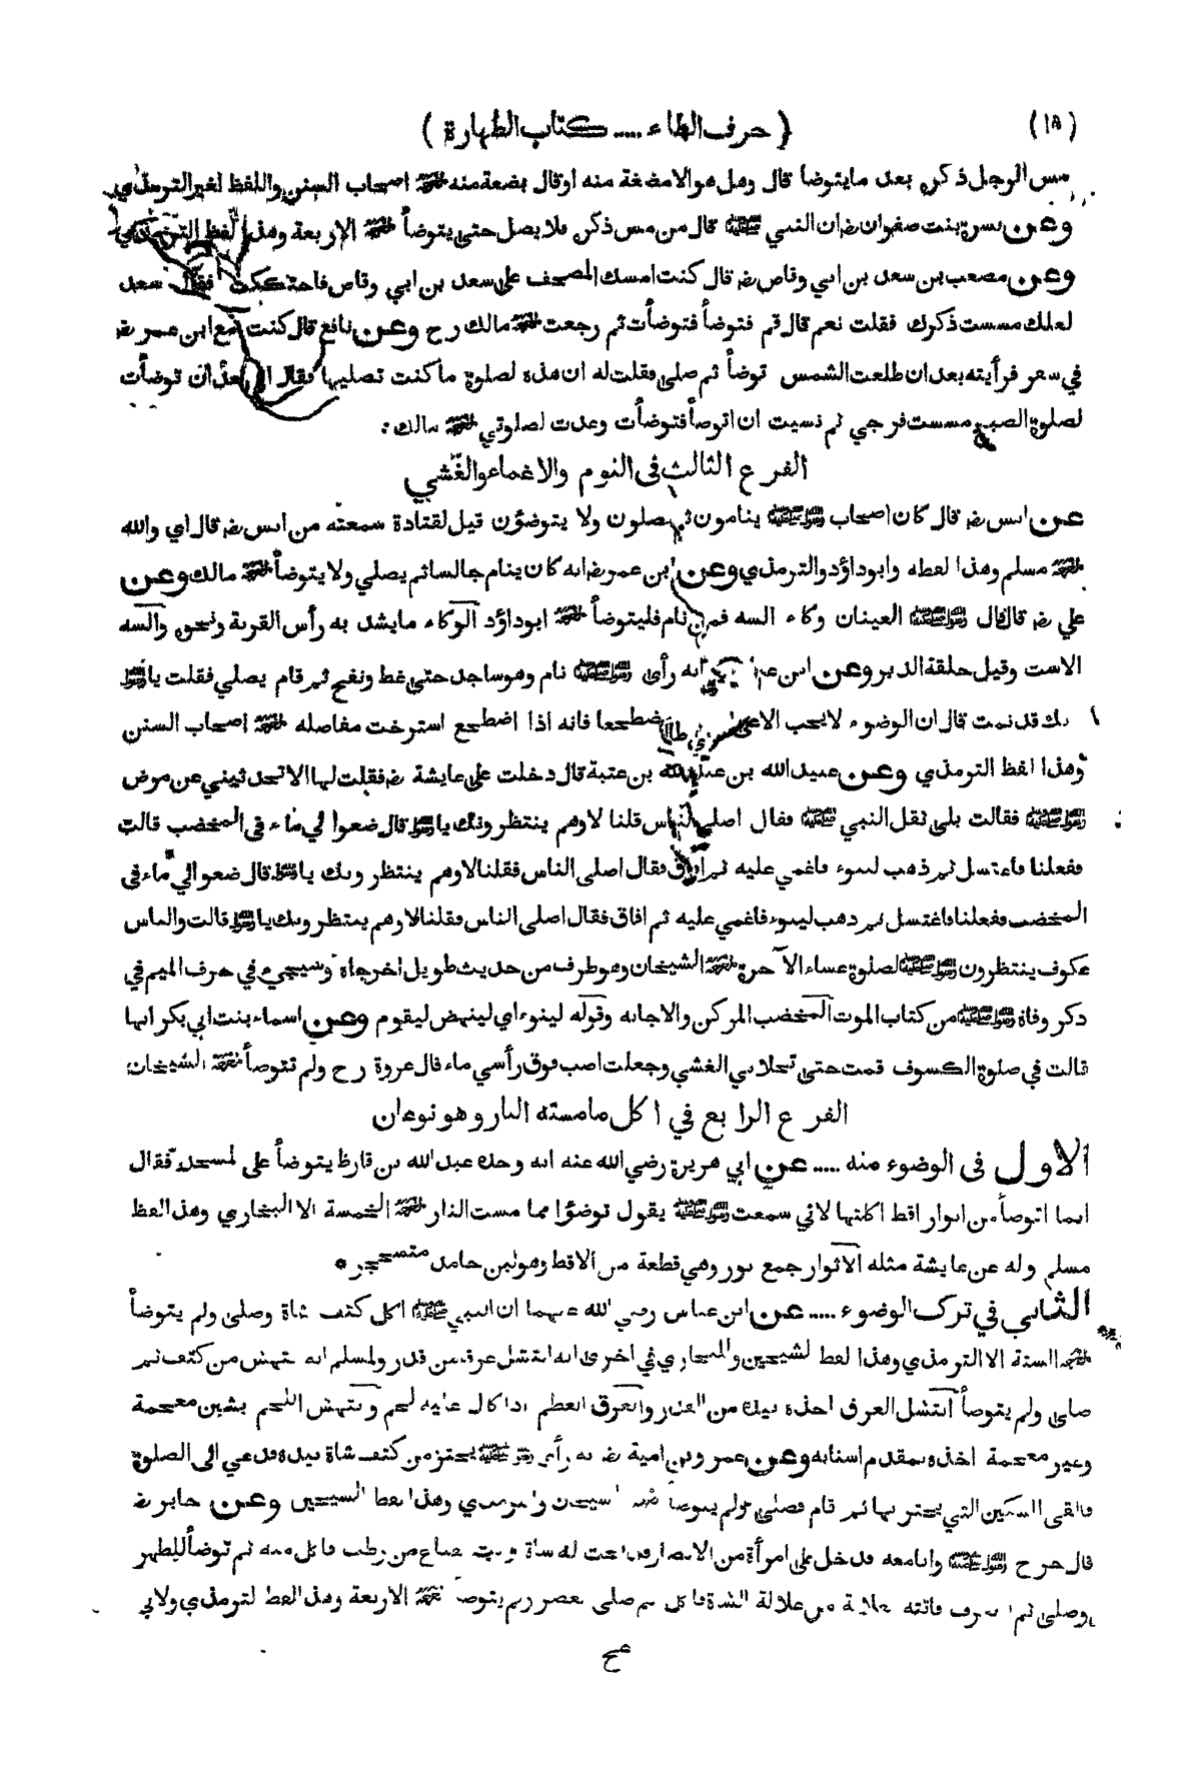 (١٨) ( حرف الطاء ..... كتاب الطهارة )
مس الرجل ذكره بعد مايتوضأ قال وهل هو الا مضغة منه او قال بضعة منه اخرجه اصحاب السنن واللفظ لغير الترمذي
وعن بسرة بنت صفوان رض ان النبي ﷺ قال من مس ذكره فلا يصل حتى يتوضأ اخرجه الاربعة وهذا لفظ الترمذي
وعن مصعب بن سعد بن ابي وقاص رض قال كنت امسك المصحف على سعد بن ابي وقاص فاحتككت فقال سعد
لعلك مسست ذكرك فقلت نعم قال قم فتوضأ فتوضأت ثم رجعت اخرجه مالك رح وعن نافع قال كنت مع ابن عمر رض
في سفر فرأيته بعد ان طلعت الشمس توضأ ثم صلى فقلت له ان هذه لصلوة ماكنت تصليها فقال اني بعد ان توضأت
لصلوة الصبح مسست فرجي ثم نسيت ان اتوضأ فتوضأت وعدت لصلوتي اخرجه مالك
الفرع الثالث فى النوم والاغماء والغشي
عن انس رض قال كان اصحاب رسول الله ﷺ ينامون ثم يصلون ولا يتوضؤن قيل لقتادة سمعته من انس رض قال اي والله
اخرجه مسلم وهذا لفظه وابوداؤد والترمذي وعن ابن عمر رض انه كان ينام جالسا ثم يصلي ولا يتوضأ اخرجه مالك وعن
علي رض قال قال رسول الله ﷺ العينان وكاء السه فمن نام فليتوضأ اخرجه ابوداؤد الوكاء مايشد به رأس القربة ونحوه والسه
الاست وقيل حلقة الدبر وعن ابن عباس انه رأى رسول الله ﷺ نام وهو ساجد حتى غط ونفخ ثم قام يصلي فقلت يا رسول
الله انك قد نمت قال ان الوضوء لايجب الا على من نام مضطجعا فانه اذا اضطجع استرخت مفاصله اخرجه اصحاب السنن
وهذا لفظ الترمذي وعن عبيد الله بن عبد الله بن عتبة قال دخلت على عايشة رض فقلت لها الا تحدثيني عن مرض
رسول الله ﷺ فقالت بلى ثقل النبي ﷺ فقال اصلى الناس قلنا لا وهم ينتظرونك يا رسول الله قال ضعوا لي ماء فى المخضب قالت
ففعلنا فاغتسل ثم ذهب لينوء فاغمي عليه ثم افاق فقال اصلى الناس فقلنا لا وهم ينتظرونك يا رسول الله قال ضعوا لي ماء فى
المخضب ففعلنا فاغتسل ثم ذهب لينوء فاغمي عليه ثم افاق فقال اصلى الناس فقلنا لا وهم ينتظرونك يا رسول الله قالت والناس
عكوف ينتظرون رسول الله ﷺ لصلوة عشاء الآخرة اخرجه الشيخان وهو طرف من حديث طويل اخرجاه وسيجيء في حرف الميم في
ذكر وفاة رسول الله ﷺ من كتاب الموت المخضب المركن والاجانه وقوله لينوء اي لينهض ليقوم وعن اسماء بنت ابي بكر انها
قالت في صلوة الكسوف قمت حتى تجلاني الغشي وجعلت اصب فوق رأسي ماء قال عروة رح ولم تتوضأ اخرجه الشيخان
الفرع الرابع في اكل مامسته النار وهو نوعان
الاول فى الوضوء منه ..... عن ابي هريرة رضي الله عنه انه وجده عبد الله بن قارظ يتوضأ على المسجد فقال
انما اتوضأ من اثوار اقط اكلتها لاني سمعت رسول الله ﷺ يقول توضؤا مما مست النار اخرجه الخمسة الا البخاري وهذا لفظ
مسلم وله عن عايشة مثله الاثوار جمع ثور وهي قطعة من الاقط وهو لبن جامد متحجر
الثاني في ترك الوضوء ..... عن ابن عباس رضي الله عنهما ان النبي ﷺ اكل كتف شاة وصلى ولم يتوضأ
اخرجه الستة الا الترمذي وهذا لفظ الشيخين والبخاري في اخرى انه انتشل عرقا من قدر ولمسلم انه نتهش من كتف ثم
صلى ولم يتوضأ انتشل العرق اخذه بيده من القدر والعرق العظم اذا كان عليه لحم ونتهش اللحم بشين معجمة
وغير معجمة اخذه بمقدم اسنانه وعن عمرو بن امية رض انه رأى رسول الله ﷺ يحتز من كتف شاة بيده فدعي الى الصلوة
فالقى السكين التي يحتز بها ثم قام فصلى ولم يتوضأ اخرجه الشيخان والترمذي وهذا لفظ الشيخين وعن جابر رض
قال خرج رسول الله ﷺ وانا معه فدخل على امرأة من الانصار فذبحت له شاة واتت بقناع من رطب فاكل منه ثم توضأ للظهر
وصلى ثم انصرف فاتته بعلالة من علالة الشاة فاكل ثم صلى العصر ولم يتوضأ اخرجه الاربعة وهذا لفظ الترمذي ولابي